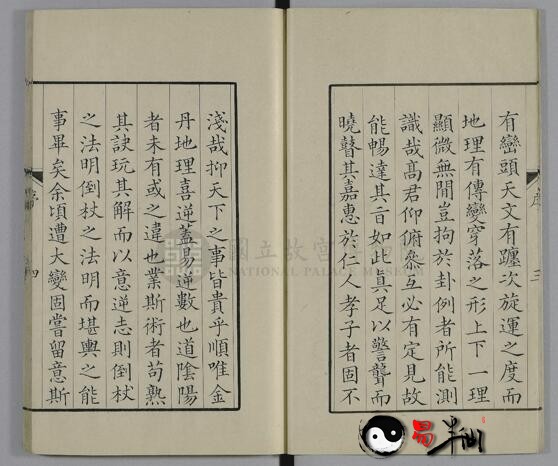 有巒頭天文有躔次旋運之度而
地理有傳變穿落之形上下一理
顯微無間豈拘於卦例者所能測
識哉高君仰俯叅互必有定見故
能暢達其旨如此真足以警聾而
曉瞽其嘉惠於仁人孝子者固不
三
淺哉抑天下之事皆貴乎順唯金
丹地理喜逆蓋易逆數也道陰陽
者未有或之違也業斯術者苟熟
其訣玩其解而以意逆志則倒杖
之法明倒杖之法明而堪輿之能
事畢矣余頃遭大變固嘗留意斯
四
國立故宮
NATIONAL PALACE MUSEUM
易